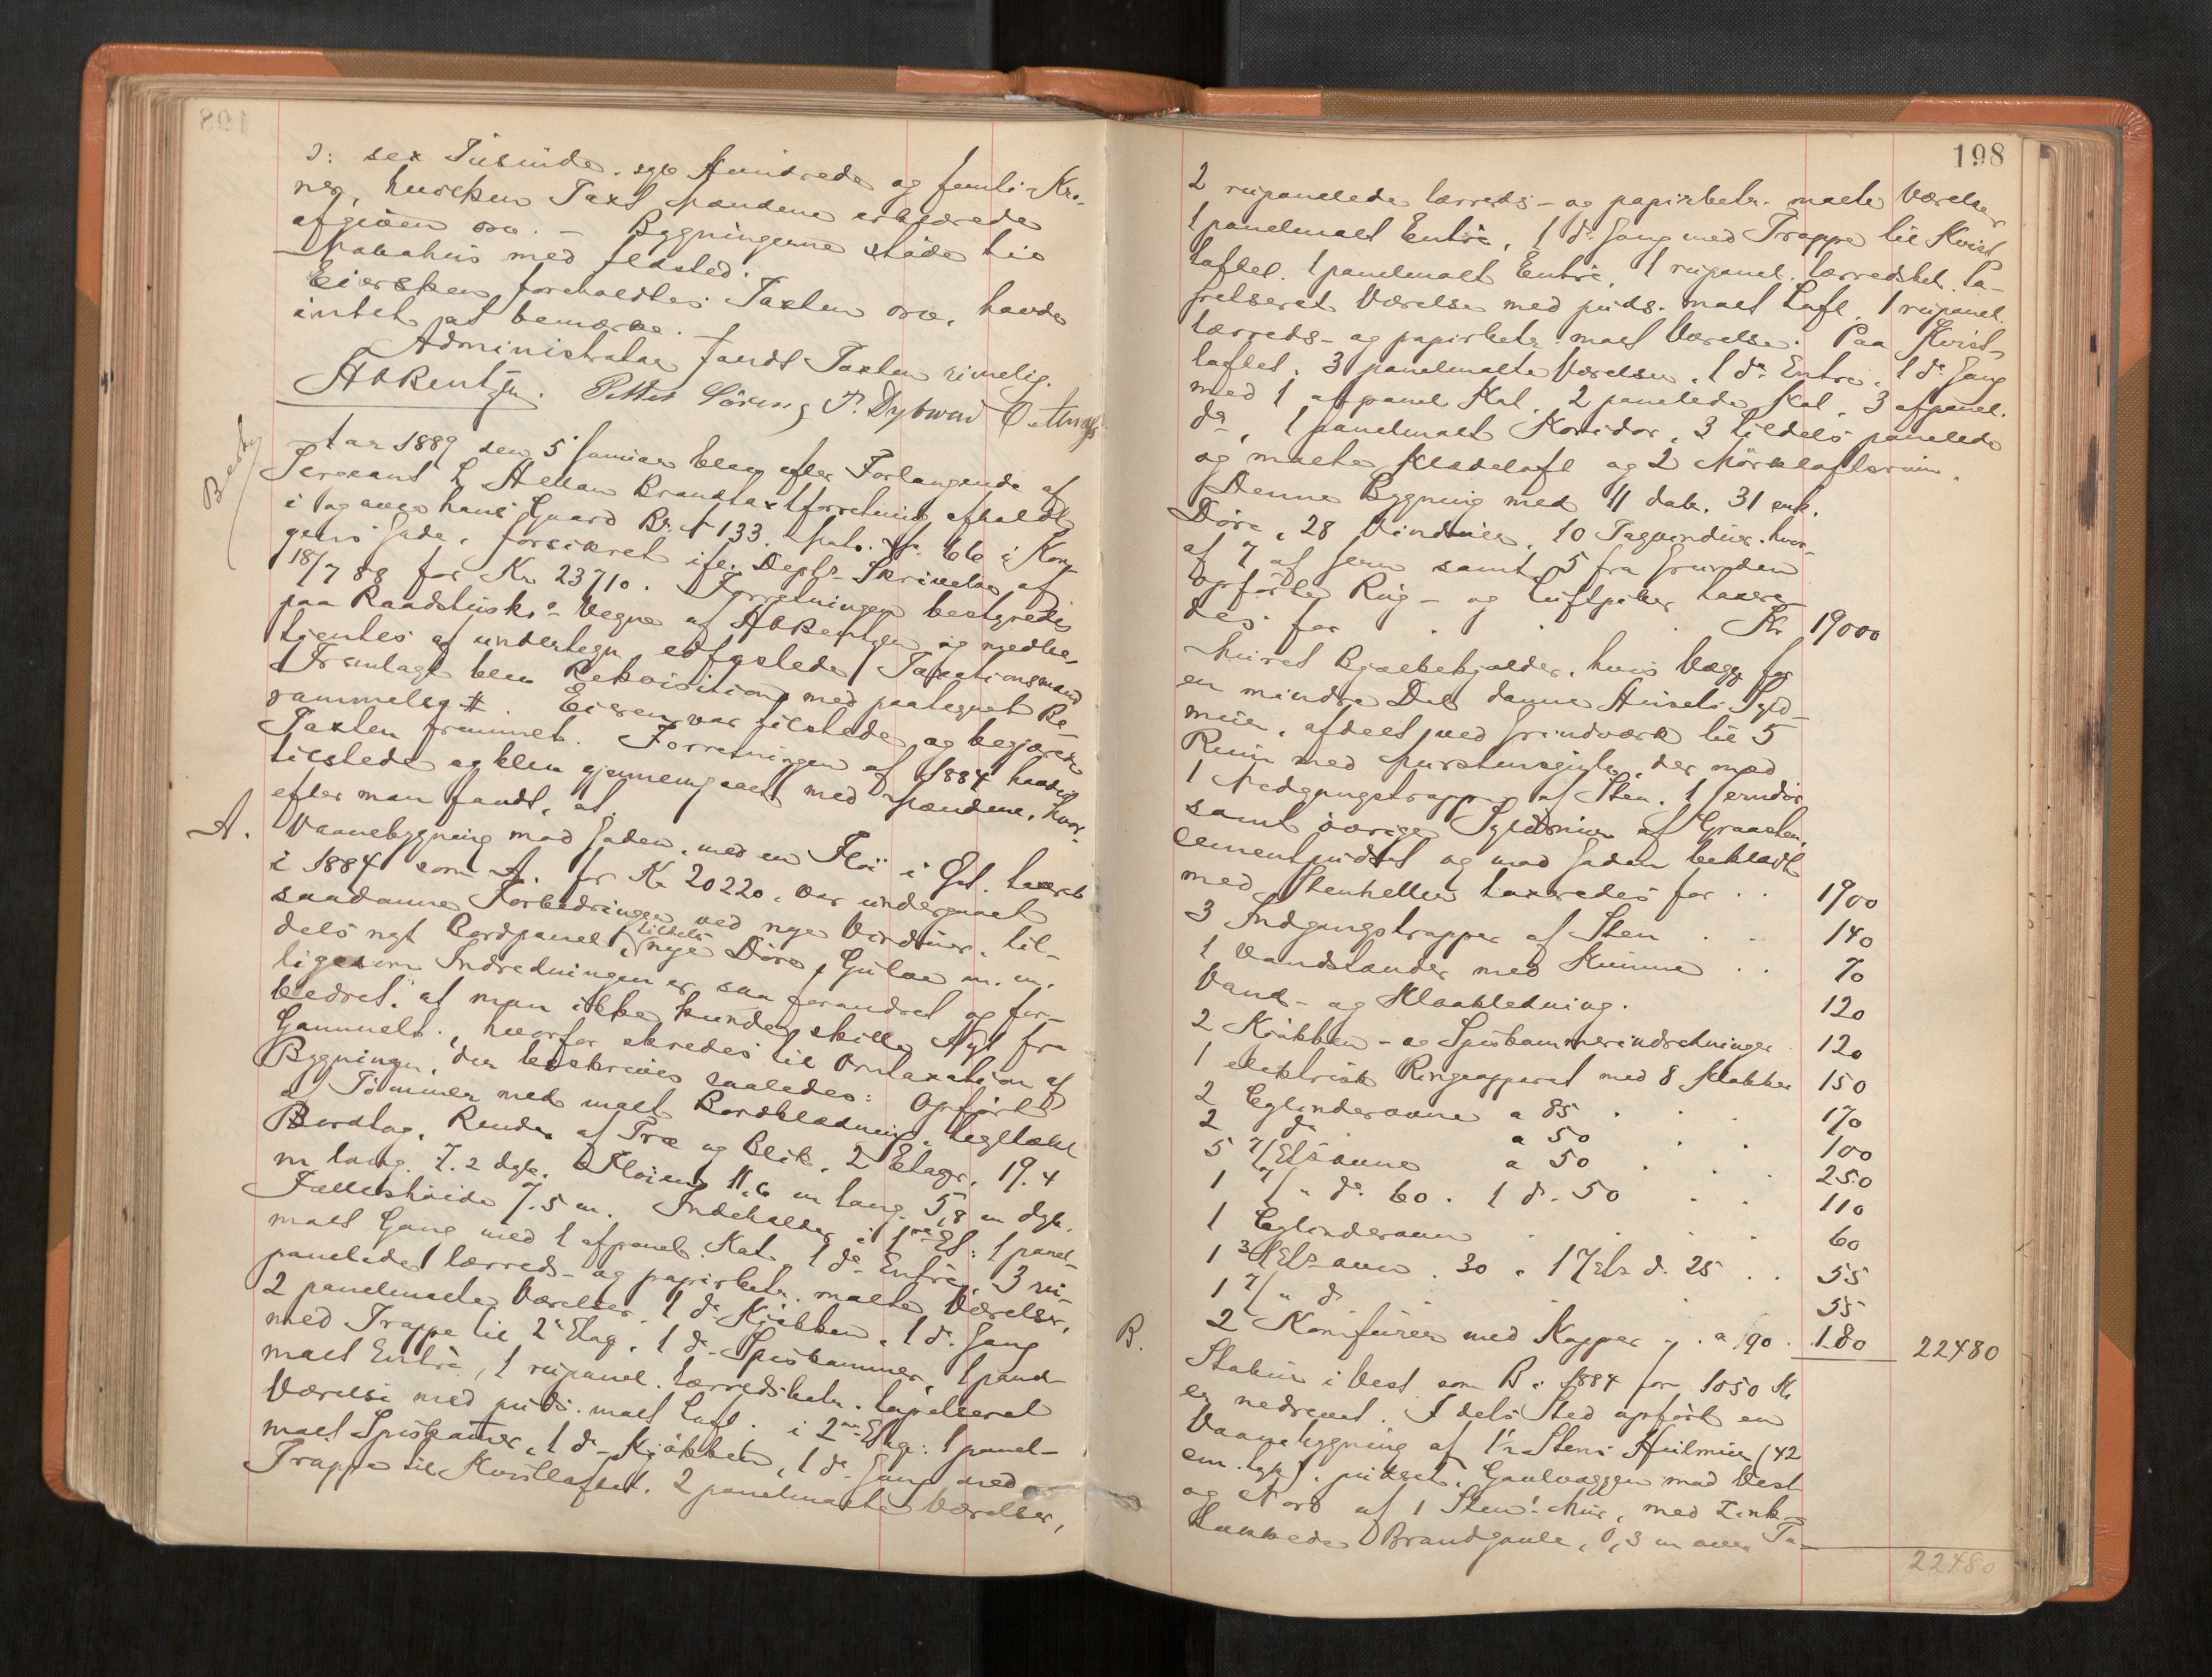 ɔ: sex Tusinde syv Hundrede og femti Kro-
ner, hvilken Taxt Mændene erklærede
afgiven osv. — Bygningerne stöde til
Nabohus med Ildsted.
Eiersken foreholdtes Taxten osv. havde
intet at bemærke.
Administrator fandt Taxten rimelig.
ABRentzen. Petter Sörung P. Dybwad O.
Aar 1889 den 5 Januar blev efter Forlangende af
Sergeant L Aellan Brandtaxtforretning afholdt
i og over hans Gaard Br. № 133. Matr. № 66 i Kon-
gens Gade, forsikret ifl. Depts. Skrivelse af
18/7 88 for Kr 23710. Forretningen bestyredes
paa Raadstusk.s Vegne af ABRentzen og medbe-
tjentes af undertegn. edfæstede Taxationsmænd
Fremlagt blev Rekvisition med paategnet Be-
rammelse #. Eieren var tilstede og begjærede
Taxten fremmet. Forretningen af 1884 havdes
tilstede og blev gjennemgaaet med Mændene, hvor-
efter man fandt, at
A. Vaanebygning mod Gaden, med en Flöi i Gd. taxeret
i 1884 som A. for Kr 20220. var undergaaet
saadanne Forbedringer ved nye Vinduer, til-
dels nyt Bordpanel, tildels nye Döre, Gulve m. m.
ligesom Indredningen er saa forandret og for-
bedret, at man ikke kunde skille Nyt fra
Gammelt, hvorfor skredes til Omtaxation af
Bygningen, der beskrives saaledes: Opfört
af Tömmer med malt Bordklædning, teglhængt
Bordtag, Render af Træ og Blik, 2 Etager, 19.4
m lang. 7.2 dyb. Flöien 11.6 m lang. 5,8 m dyb.
Fælleshöide 7.5 m. Indeholder i 1ste Et: 1 panel-
malt Gang med 1 afpanel. Kot. 1 do Entré, 3 ru-
panelede lærreds- og papirbetr. malte Værelser,
2 panelmalte Værelser, 1 do Kjökken, 1 do. Gang
med Trappe til 2 Etag. 1 do Spiskammer, 1 panel-
malt Entré, 1 rupanel. lærredsbetr. tapetseret
Værelse med puds. malt Loft. i 2den Etage: 1 panel-
malt Spiskamer, 1 do Kjökken, 1 do. Gang med
Trappe til Kvistloftet. 2 panelmalte Værelser,
198
2 rupanelede lærreds- og papirbetr. malte Værelser
1 panelmalt Entré, 1 do. Gang med Trappe til Kvist-
loftet. 1 panelmalt Entré, 1 rupanel. lærredsbet. ta-
petseret Værelse med puds. malt Loft, 1 rupanel.
lærreds- og papirbetr. malt Værelse. Paa Kvist-
loftet: 3 panelmalte Værelser, 1 do Entré, 1 do Gang
med 1 afpanel Kot. 2 panelede Kot, 3 afpanel.
do, 1 panelmalt Koridor, 3 tildels panelede
og malte Klædeloft og 2 Mörkeloftsrum.
Denne Bygning med 11 dob. 31 enk.
Döre, 28 Vinduer, 10 Tagvinduer, hvor-
af 7 af Jern samt 5 fra Grunden
opförte Rög- og Luftpiber taxere-
des for . . . Kr 19000
Muret Bjælkekjælder, hvis Vægge for
en mindre Del danne Husets Syld-
mur, afdelt ved Grindværk til 5
Rum med Murstensgulv, der med
1 Nedgangstrappe af Sten, 1 Jerndör
samt övrige Syldmur af Graasten,
cementpudset og mod Gaden beklædt
med Stenheller taxeredes for . . 1900
3 Indgangstrapper af Sten . . 140
1 Vandstænder med Kumme . . 70
Vand- og Kloakledning. 120
2 Kjökken- og Spiskammerindretninger 120
1 elektrisk Ringeapparat med 8 Klokker 150
2 Cylinderovne a 85 . . 170
2 do a 50 . . 100
5 7/Etsovne a 50 . . 250
1 7/" do 60. 1 do. 50 . . 110
1 Cylinderovn . . . 60
1 3/Ets ovn. 30. 1 7/Ets do 25 . . 55
1 7/" do . . . 55
2 Komfurer med Kapper . a 90 . 180 22480
B. Stabur i Vest som B i 1884 for 1050 Kr
er nedrevet. I dets Sted opfört en
Vaanebygning af 1½ Stens Hulmur (42
cm. tyk), pudset, Gavlvæggen mod Vest
og Nord af 1 Stens Mur, med Zink-
dækkede Brandgavle, 0,3 m over Ta-
22480